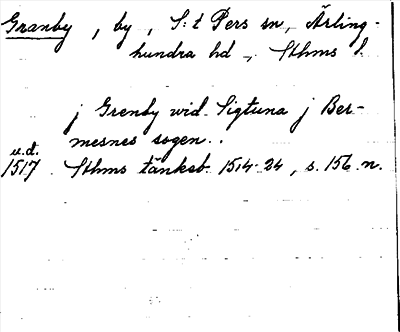 Granby, by, S:t Pers sn, Ärling-
hundra hd, Sthms l.
j Grenby wid Sigtuna j Ber-
mesnes sogen..
u.d.
1517. Sthms tänkeb. 1514-24, s. 156 n.